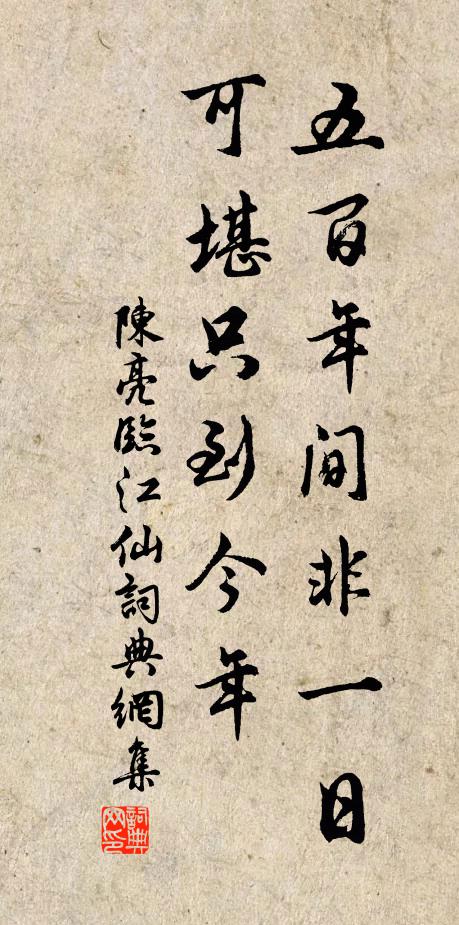 五百年間非一日
可堪只到今年
陳亮臨江仙詞典網集
詞典网印